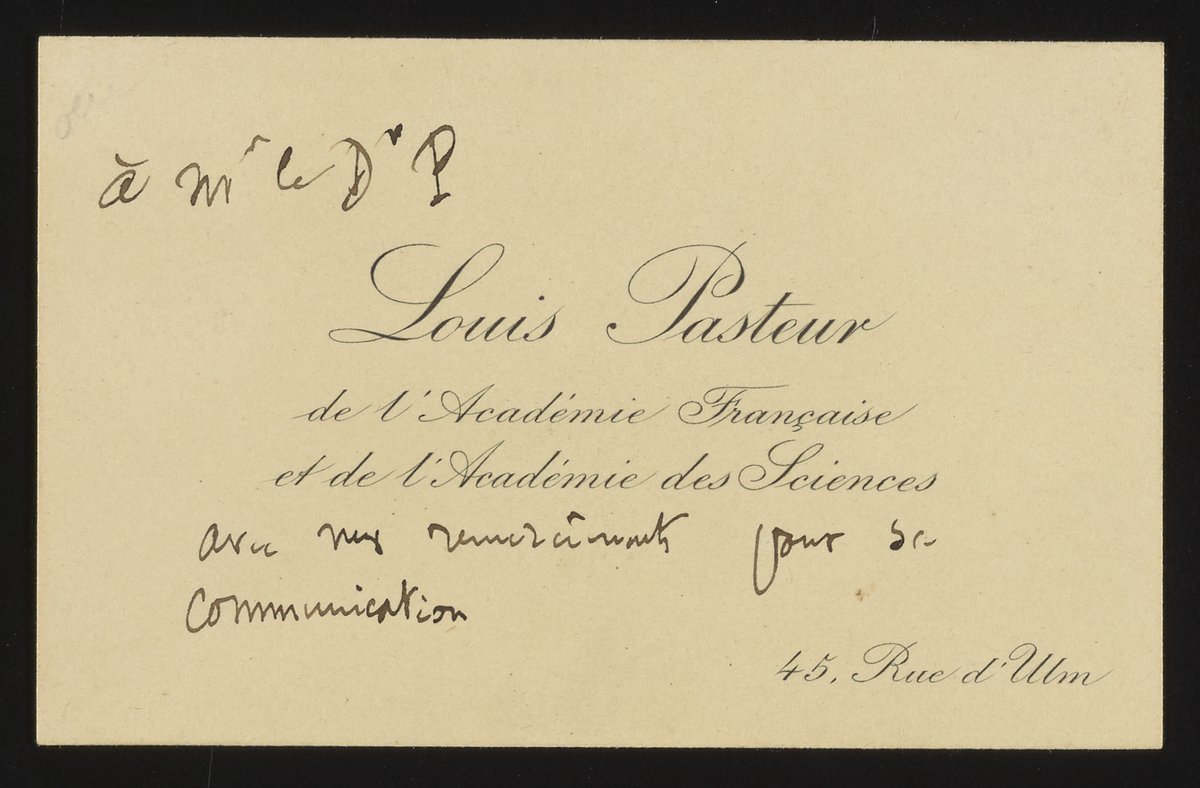 à Mr le Dr P
Louis Pasteur
de l'Académie Française
et de l'Académie des Sciences
avec mes remerciements pour sa
communication
45, Rue d'Ulm